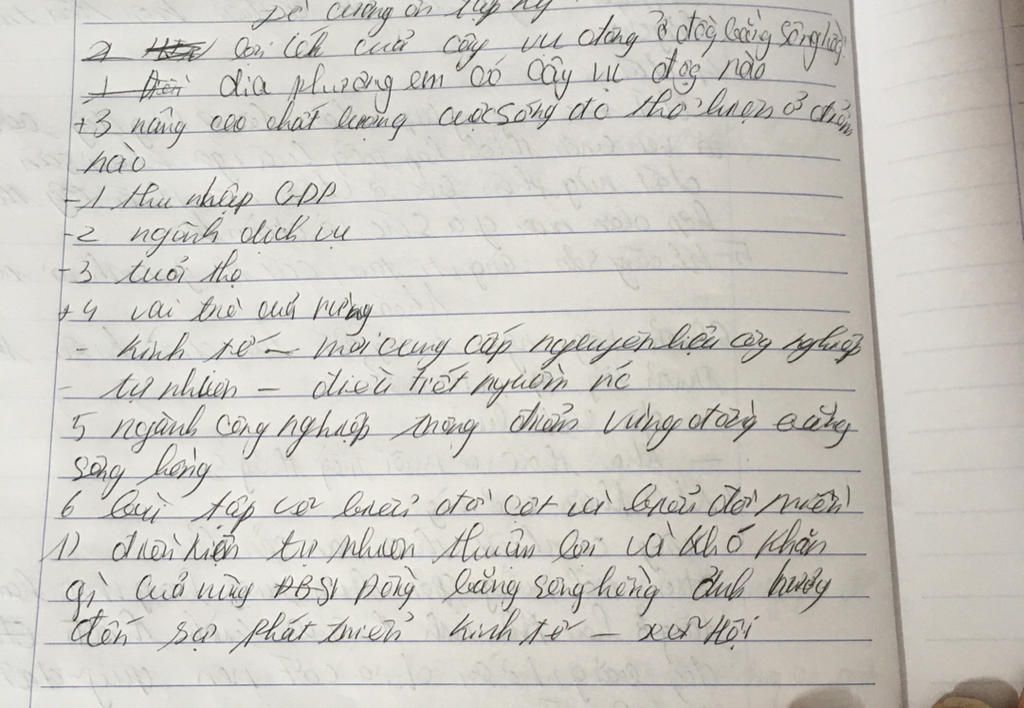 Đề cương ôn tập kỳ
2 lợi ích của cây vụ đông ở đồng bằng sông hồng
1 địa phương em có cây vụ đog nào
+3 nâng cao chất lượng cuộc sống đc thể hiện ở điểm
nào
-1 thu nhập GDP
-2 ngành dịch vụ
-3 tuổi thọ
+4 vai trò của rừng
- kinh tế - cung cấp nguyên liệu công nghiệp
- tự nhiên - điều tiết nguồn nc
5 ngành công nghiệp trọng điểm vùng đồng bằng
sông hồng
6 bài tập vẽ biểu đồ cột và biểu đồ miền
1) điều kiện tự nhiên thuận lợi và khó khăn
gì của vùng ĐBSH Đồng bằng sông hồng ảnh hưởng
đến sự phát triển kinh tế - xã Hội